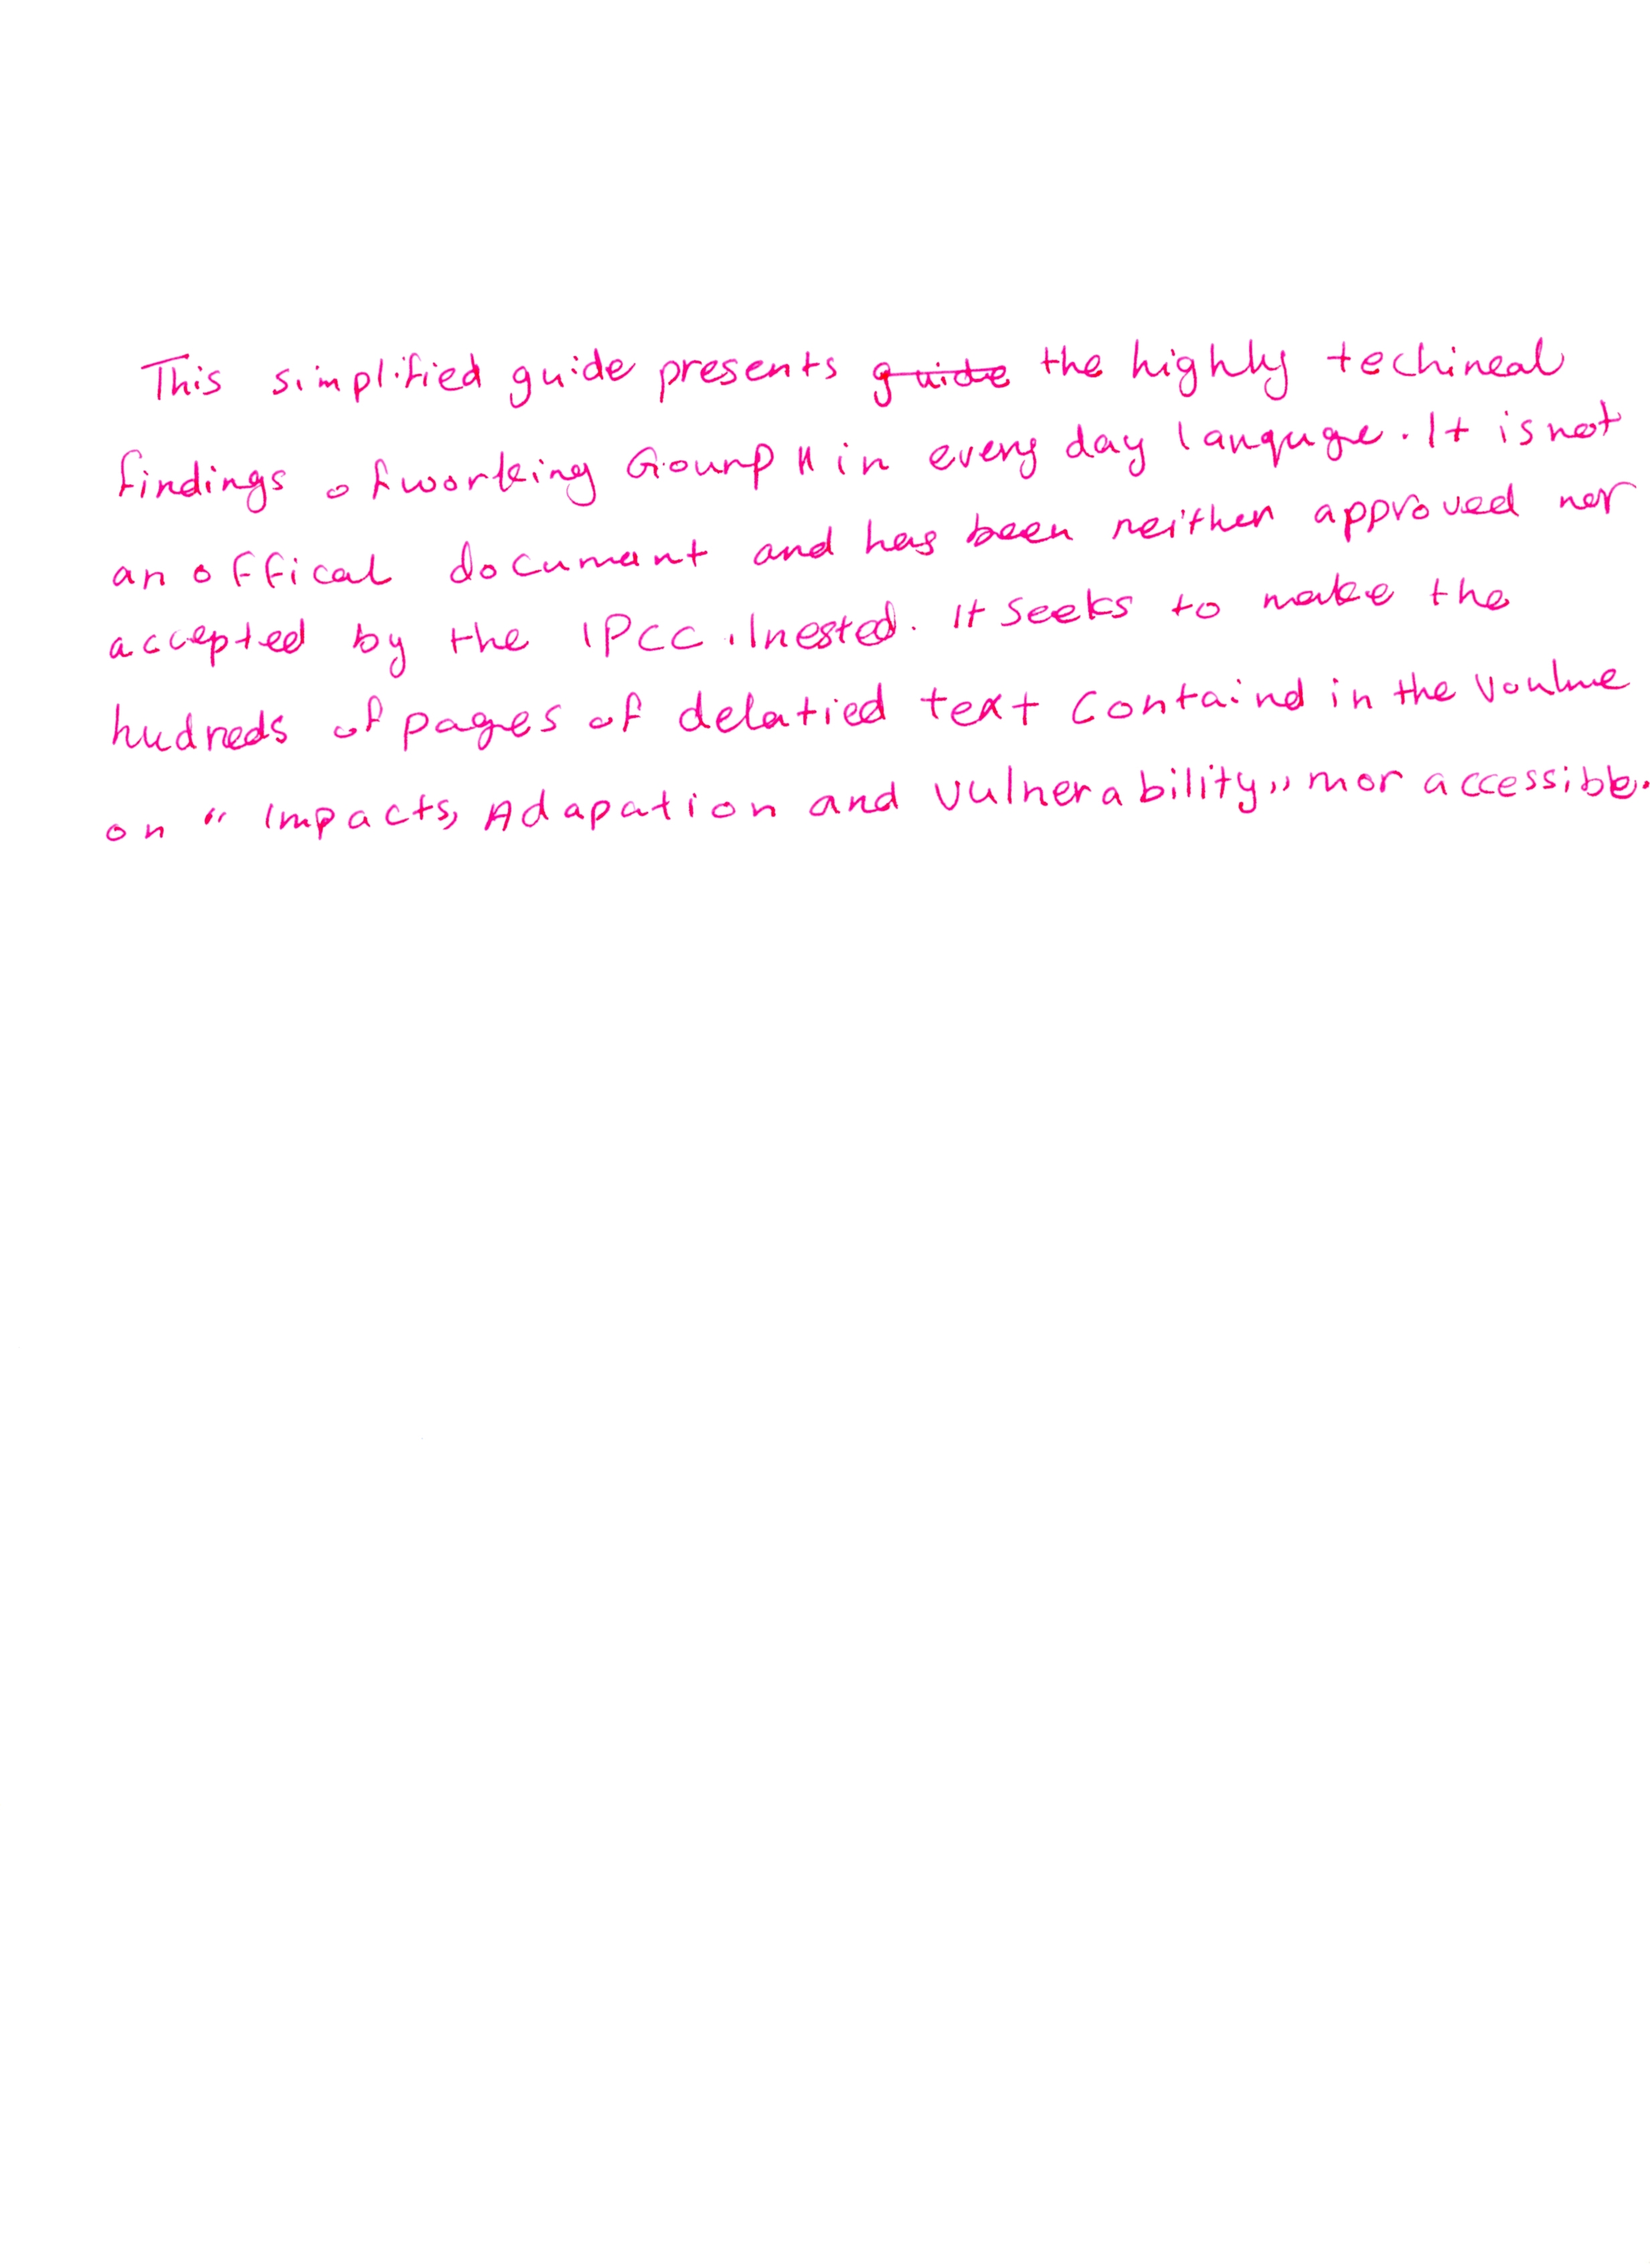 This simplified guide presents guide the highly techineal
findings of working Gounp II in every day languge. It is not
an offical documant and has been neither approved nor
accepted by the IPCC. Inested. It seeks to make the
hudreds of pages of delatied text containd in the voulme
on "Impacts, Adapation and Vulnerability" mor accessible.